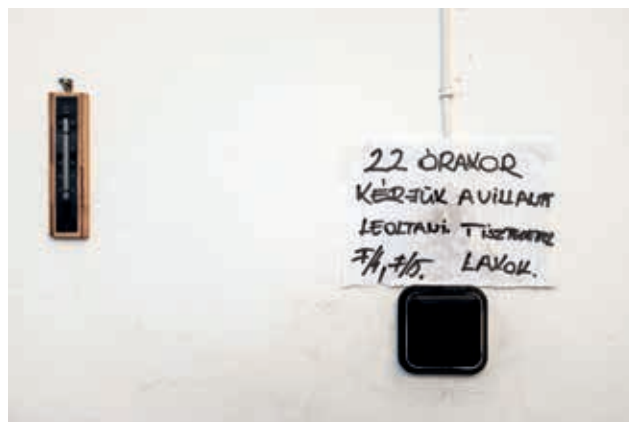 22 ÓRAKOR
KÉRJÜK A VILLANYT
LEOLTANI. TISZTELETTEL
I/4, I/5. LAKÓK.